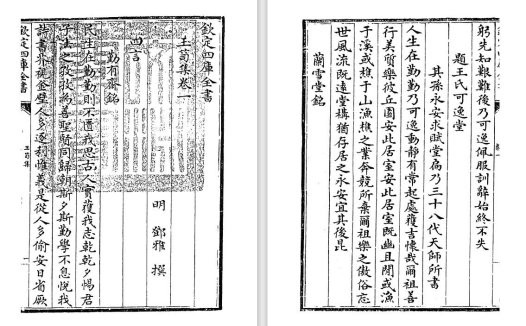 欽定四庫全書
玉笥集卷一
明 鄧雅 撰
四言
勤有齋銘
民生在勤勤則不匱我思古人實獲我志乾乾夕惕君
子法之孜孜為善聖賢同歸朝斯夕斯勤學不怠悅我
詩書芥視金璧人多逐利惟義是從人多偷安日省厥
欽定四庫全書
玉笥集
躬先知艱難後乃可逸佩服訓辭始終不失
題王氏可逸堂
其孫永安求賦堂扁乃三十八代天師所書
人生在勤勤乃可逸動靜有常起處穫吉懷哉爾祖善
行美質樂彼丘園安此居室安此居室既幽且閒或漁
于溪或樵于山漁樵之業奔競所棄爾祖樂之傲俗忘
世風流既遠堂構猶存居之永安宜其後昆
蘭雪堂銘